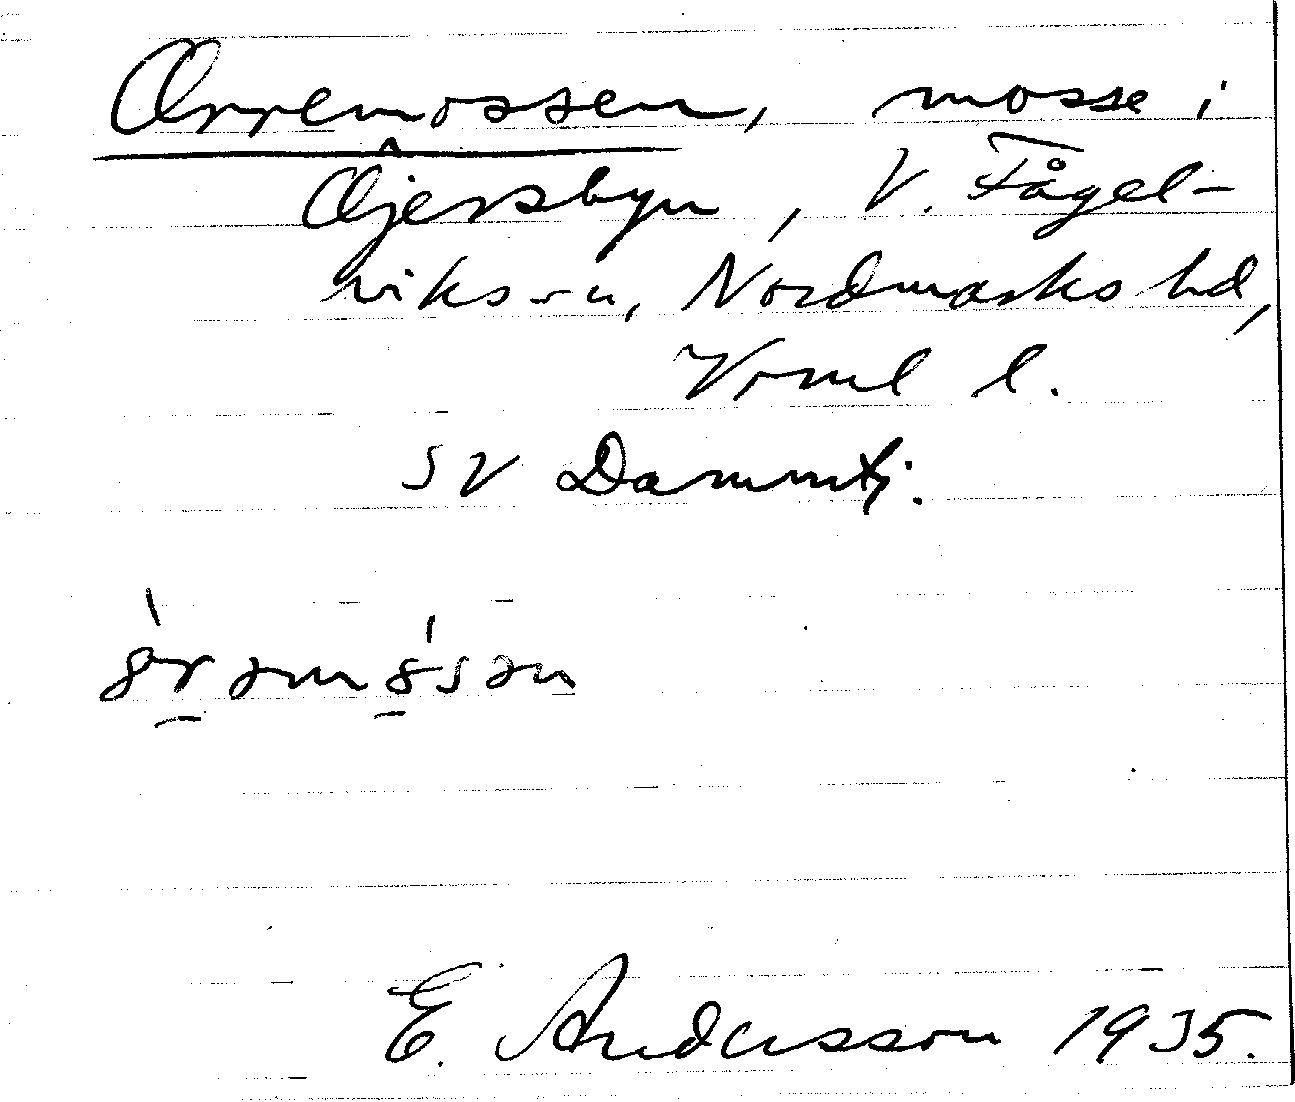 Orremossen, mosse i
Ôjersbyn, V. Fågel-
viks sn, Nordmarks hd,
Vrml l.
SV Dammtj.
E. Andersson 1935.